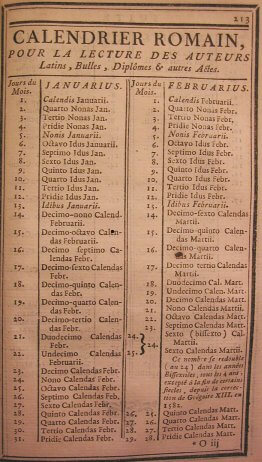 213
CALENDRIER ROMAIN,
POUR LA LECTURE DES AUTEURS
Latins, Bulles, Diplômes & autres Actes.
Jours du
Mois.
JANUARIUS.
1. Calendis Januarii.
2. Quarto Nonas Jan.
3. Tertio Nonas Jan.
4. Pridie Nonas Jan.
5. Nonis Januarii.
6. Octavo Idus Jan.
7. Septimo Idus Jan.
8. Sexto Idus Jan.
9. Quinto Idus Jan.
10. Quarto Idus Jan.
11. Tertio Idus Jan.
12. Pridie Idus Jan.
13. Idibus Januarii.
14. Decimo-nono Calend.
Februarii.
15. Decimo-octavo Calen-
das Februarii.
16. Decimo septimo Ca-
lendas Febr.
17. Decimo-sexto Calendas
Febr.
18. Decimo-quinto Calen-
das Febr.
19. Decimo-quarto Calen-
das Febr.
20. Decimo-tertio Calen-
das Febr.
21. Duodecimo Calendas
Febr.
22. Undecimo Calendas
Februarii.
23. Decimo Calendas Febr.
24. Nono Calendas Febr.
25. Octavo Calendas Febr.
26. Septimo Calendas Feb.
27. Sexto Calendas Febr.
28. Quinto Calendas Febr.
29. Quarto Calendas Febr.
30. Tertio Calendas Febr.
31. Pridie Calendas Febr.
Jours du
Mois.
FEBRUARIUS.
1. Calendis Februarii.
2. Quarto Nonas Febr.
3. Tertio Nonas Febr.
4. Pridie Nonas Febr.
5. Nonis Februarii.
6. Octavo Idus Febr.
7. Septimo Idus Febr.
8. Sexto Idus Febr.
9. Quinto Idus Febr.
10. Quarto Idus Febr.
11. Tertio Idus Febr.
12. Pridie Idus Febr.
13. Idibus Februarii.
14. Decimo-sexto Calendas
Martii.
15. Decimo-quinto Calen-
das Martii.
16. Decimo-quarto Calen-
das Martii.
17. Decimo tertio Calendas
Martii.
18. Duodecimo Cal. Mart.
19. Undecimo Calen. Mart.
20. Decimo Calendas Matt.
21. Nono Calendas Matt.
22. Octavo Calendas Matt.
23. Septimo Calendas Matt.
24. Sexto (bissexto) Cal.
Matt.
24. Sexto Calendas Martii.
Ce nombre se redouble
(au 24) dans les années
Bissextiles, tous les 4 ans,
excepté à la fin de certains
siecles, depuis la correc-
tion de Grégoire XIII. en
1582.
25, 26. Quinto Calendas Matt.
26, 27. Quarto Calendas Matt.
27, 28. Tertio Calendas Matt.
28, 29. Pridie Calendas Matt.
O iij